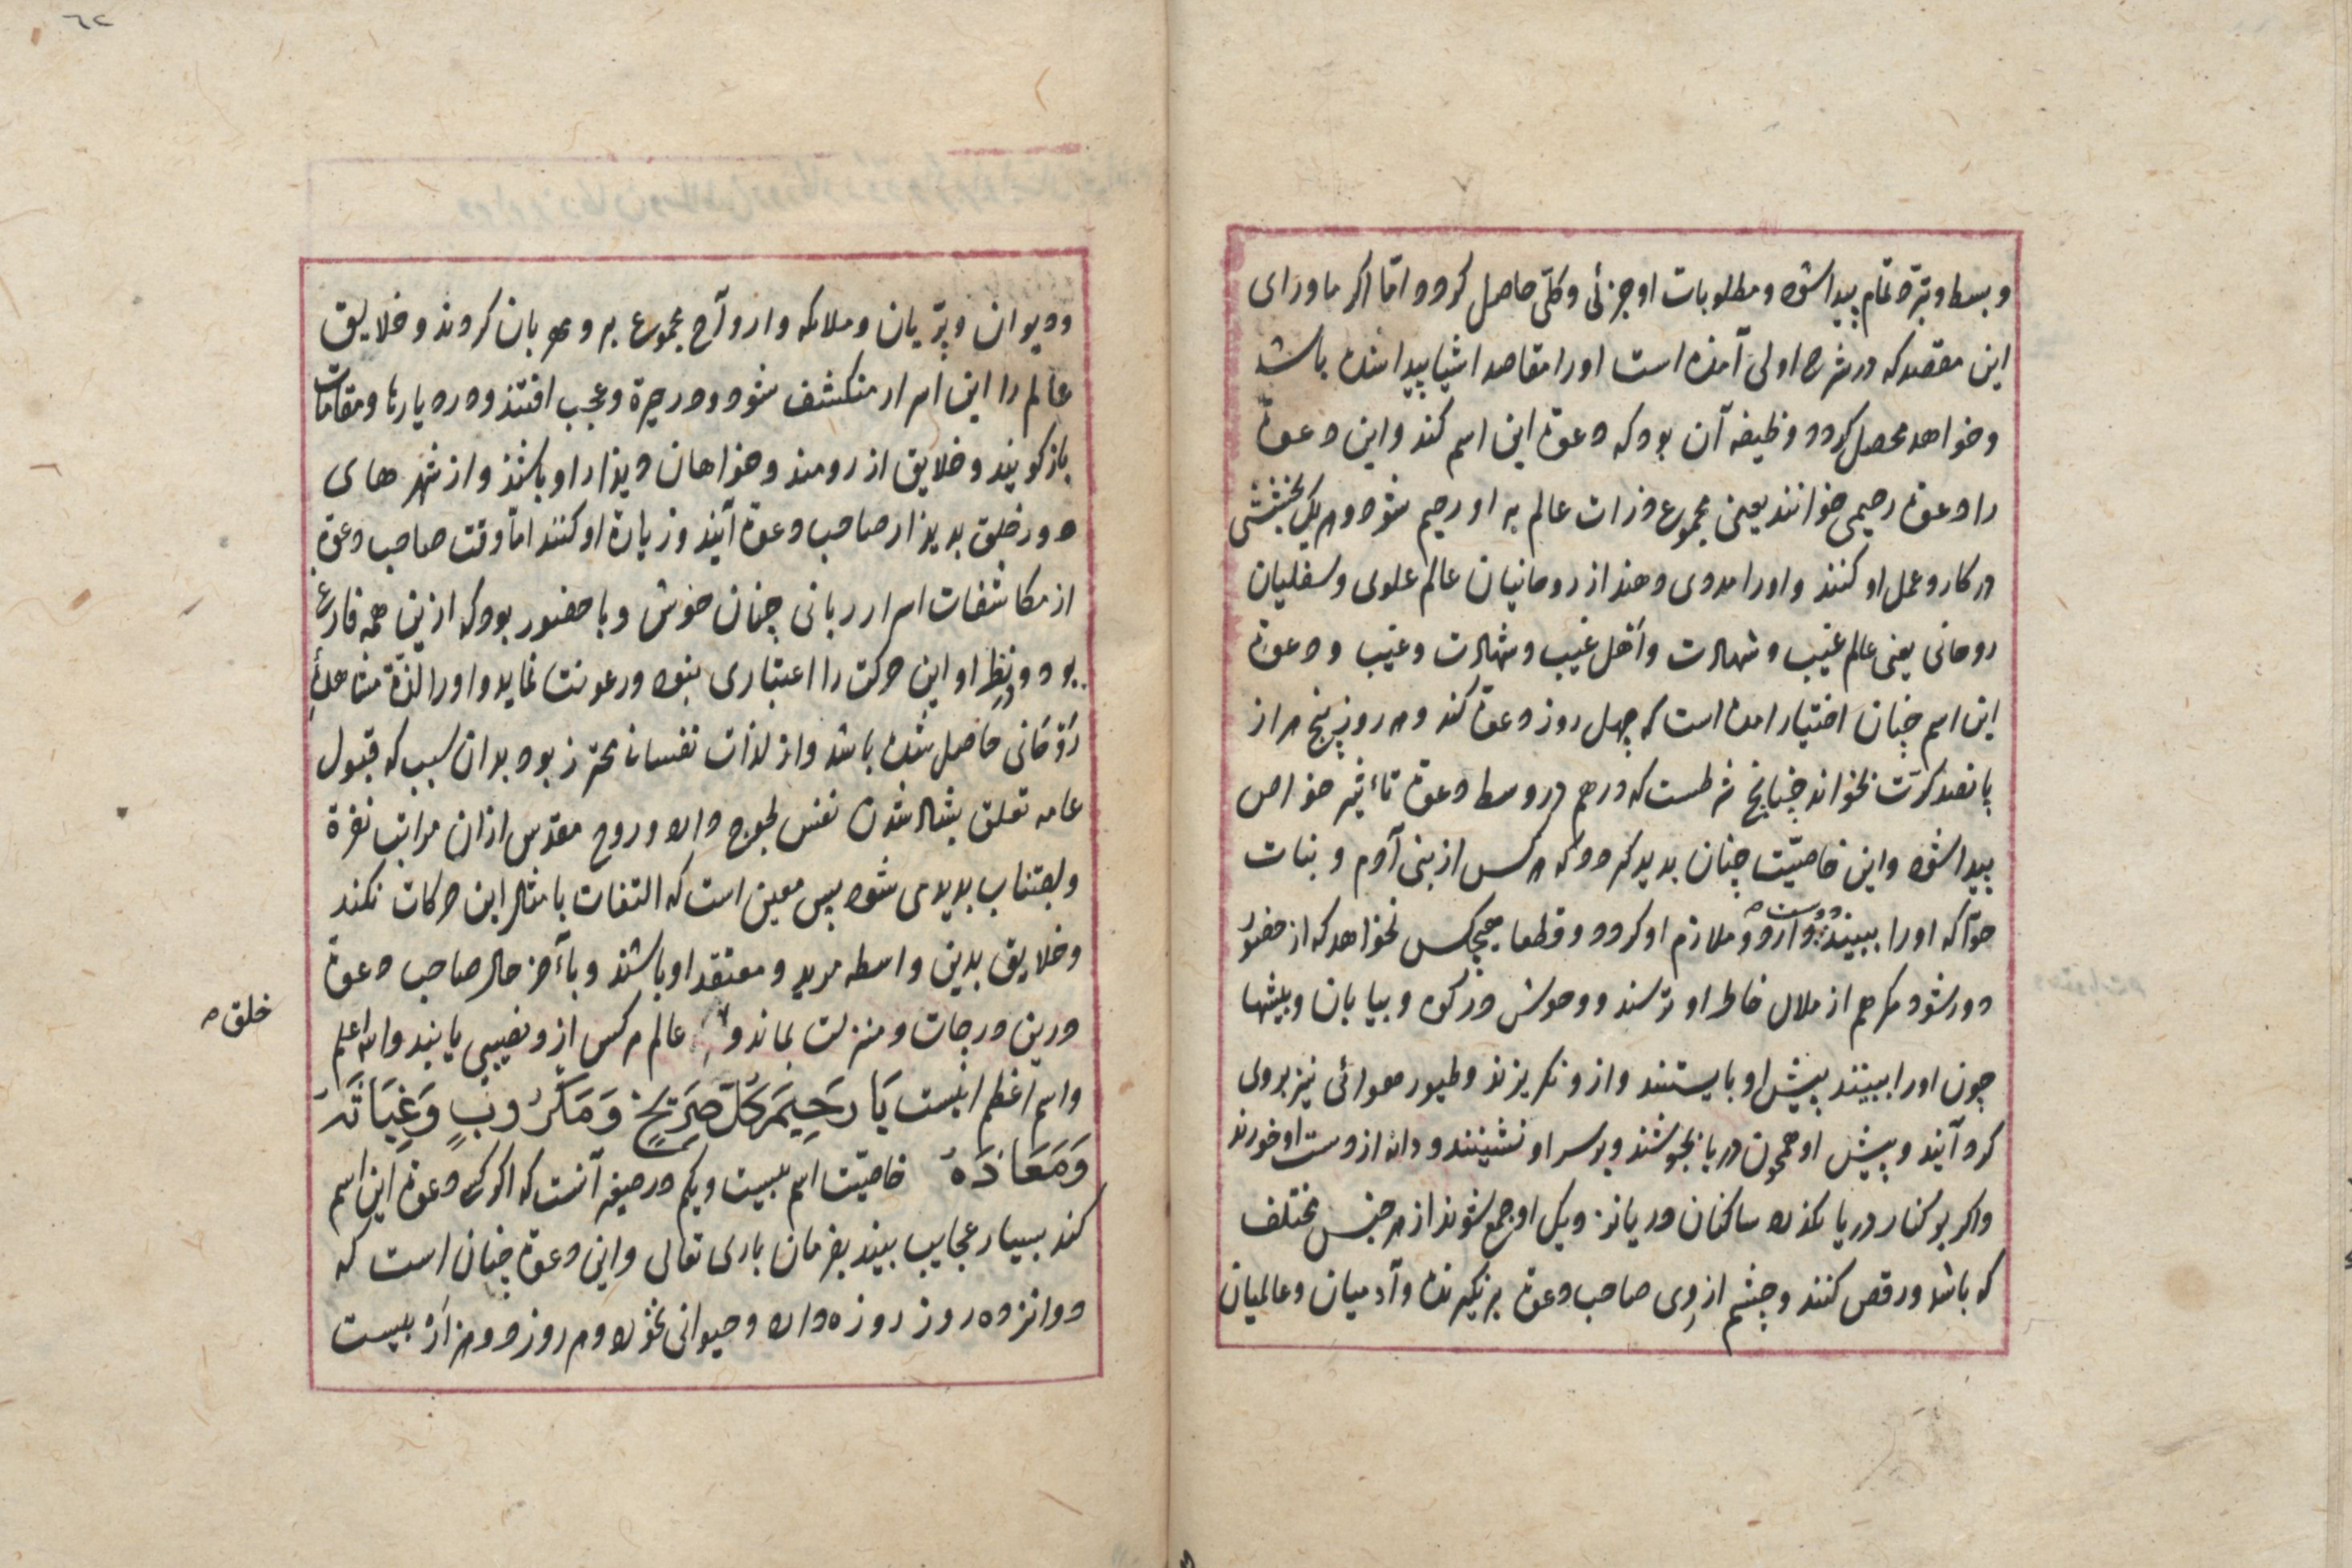 و بسط و تمام پیدا شود و مطلوبات او جزئی و کلی حاصل کردد اما اکر ماورای
این مقصد که در شرح اولی آمده است او را مقاصد اشیا پیدا شده باشد
و خواهد محصل کردد وظیفه آن بود که دعوة این اسم کند و این دعوة
را دعوة رحیمی خوانند یعنی مجموع ذرات عالم به او رحیم شود و هریک بخششی
در کار و عمل او کنند و اورا مددی دهند از روحانیان عالم علوی و سفلیان
روحانی یعنی عالم غیب و شهادت و اهل غیب و شهادت و غیب و دعوة
این اسم چنان اختیار امده است که چهل روز دعوة کند و هر روز پنج هزار
پانصد کرّت بخواند چنانچ شرطست که در هم در وسط دعوة تاءثیر خواص
پیدا شود و این خاصیّت چنان بدید کردد که هر کس از بنی آدم و بنات
حوّا که اورا ببینند دوست دارد و ملازم او کردد و قطعا هیچکس نخواهد که از حضور
دور شود مکر هم از ملال خاطر او ترسند و وحوش در کوه و بیابان و بیشها
چون اورا ببینند پیش او بایستند و ازو نکریزند و طیور هوائی نیز بروی
کرد آیند و پیش او همچون دریا بجوشند و بر سر او نشینند و دانه از دست او خورند
و اکر بر کنار دریا بکذرد ساکنان دریا نزدیک او جمع شوند از هر جنس مختلف
که باشد و رقص کنند و چشم از وی صاحب دعوة برنکیرند و آدمیان و عالمیان
و دیوان و پریان و ملائکه و ارواح مجموع بر وی مهربان کردند و خلایق
عالم را این اسرار منکشف شود و در حیرة و عجب افتند و در دیارها و مقامات
باز کویند و خلایق ارزومند و خواهان دیدار او باشند و از شهرهای
دور خلق بدیدار صاحب دعوة آیند و زیارة او کنند اما وقت صاحب دعوة
از مکاشفات اسرار ربانی چنان خوش و با حضور بود که ازین همه فارغ
بود و در نظر او این حرکت را اعتباری نبود و رعونت نماید و اورا لذّة مشاهدهٔ
رَوْحَانی حاصل شده باشد و از لذات نفسانی محترز بود بدان سبب که قبول
عامه تعلق بشاد شدن نفس لجوج دارد و روح مقدس ازان مراتب نفرة
و اجتناب بدید می شود پس معین است که التفات بامثال این حرکات نکند
و خلایق بدین واسطه مرید و معتقد او باشند و باءخر حال صاحب دعوة
درین درجات و منزلت بماند و عالم هر کس ازو نصیبی یابند والله اعلم
خلق
و اسم اعظم اینست یَا رَحِیمَ کُلِّ صَرِیخٍ وَمَکْرُوبٍ وَغِیَاثَهُ
وَمَعَاذَهُ خاصیّت اسم بیست و یکم در صیغه آنست که اکر کسی دعوة این اسم
کند بسیار عجایب بیند بفرمان باری تعالی و این دعوة چنان است که
دوانزده روز روزه دارد و حیوانی نخورد و هر روز دو هزار بیست